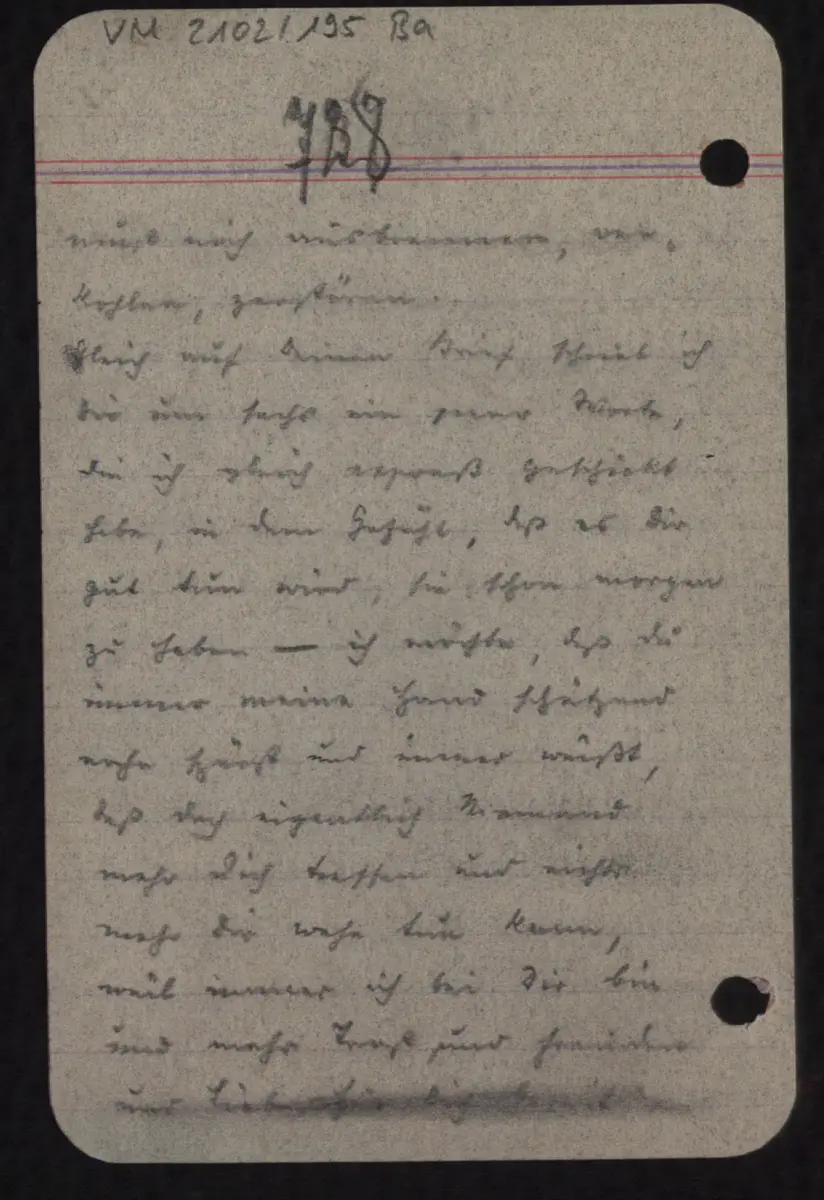 VM 2102/195 Ba
728
muß noch ausbrennen, ver-
kohlen, zerstören.
Gleich auf Deinen Brief schrieb ich
Dir um sechs ein paar Worte,
die ich gleich expreß geschickt
habe, in dem Gefühl, daß es Dir
gut tun wird, sie schon morgen
zu haben — ich möchte, daß Du
immer meine Hand schützend
nahe spürst und immer weißt,
daß doch eigentlich Niemand
mehr Dich treffen und nichts
mehr Dir wehe tun kann,
weil immer ich bei Dir bin
und mehr Trost und Freuden
und Liebe für Dich bereit